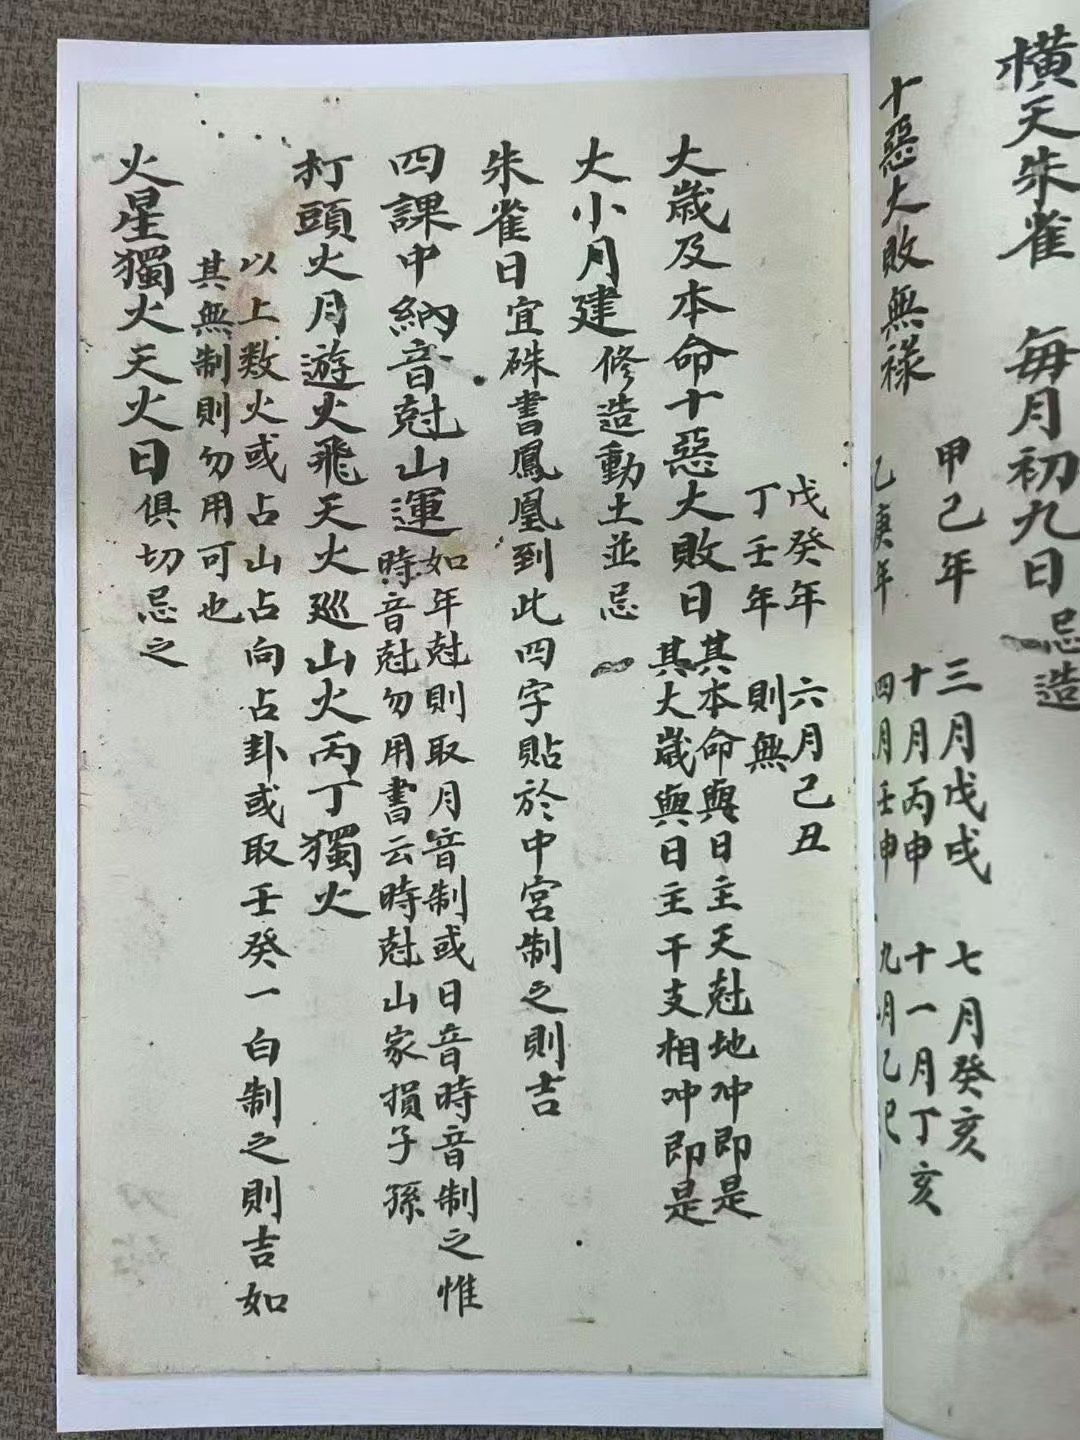 橫天朱雀　每月初九日忌造
十惡大敗無祿
甲己年　三月戊戌　七月癸亥
十月丙申　十一月丁亥
乙庚年　四月壬申　九月乙巳
戊癸年　六月己丑
丁壬年　則無
大歲及本命十惡大敗日
其本命與日主天尅地冲即是
其大歲與日主干支相冲即是
大小月建　修造動土並忌
朱雀日宜硃書鳳凰到此四字貼於中宮制之則吉
四課中納音尅山運
如年尅則取月音制或日音時音制之惟
時音尅勿用書云時尅山家損子孫
打頭火月遊火飛天火巡山火丙丁獨火
以上数火或占山占向占卦或取壬癸一白制之則吉如
其無制則勿用可也
火星獨火天火日俱切忌之